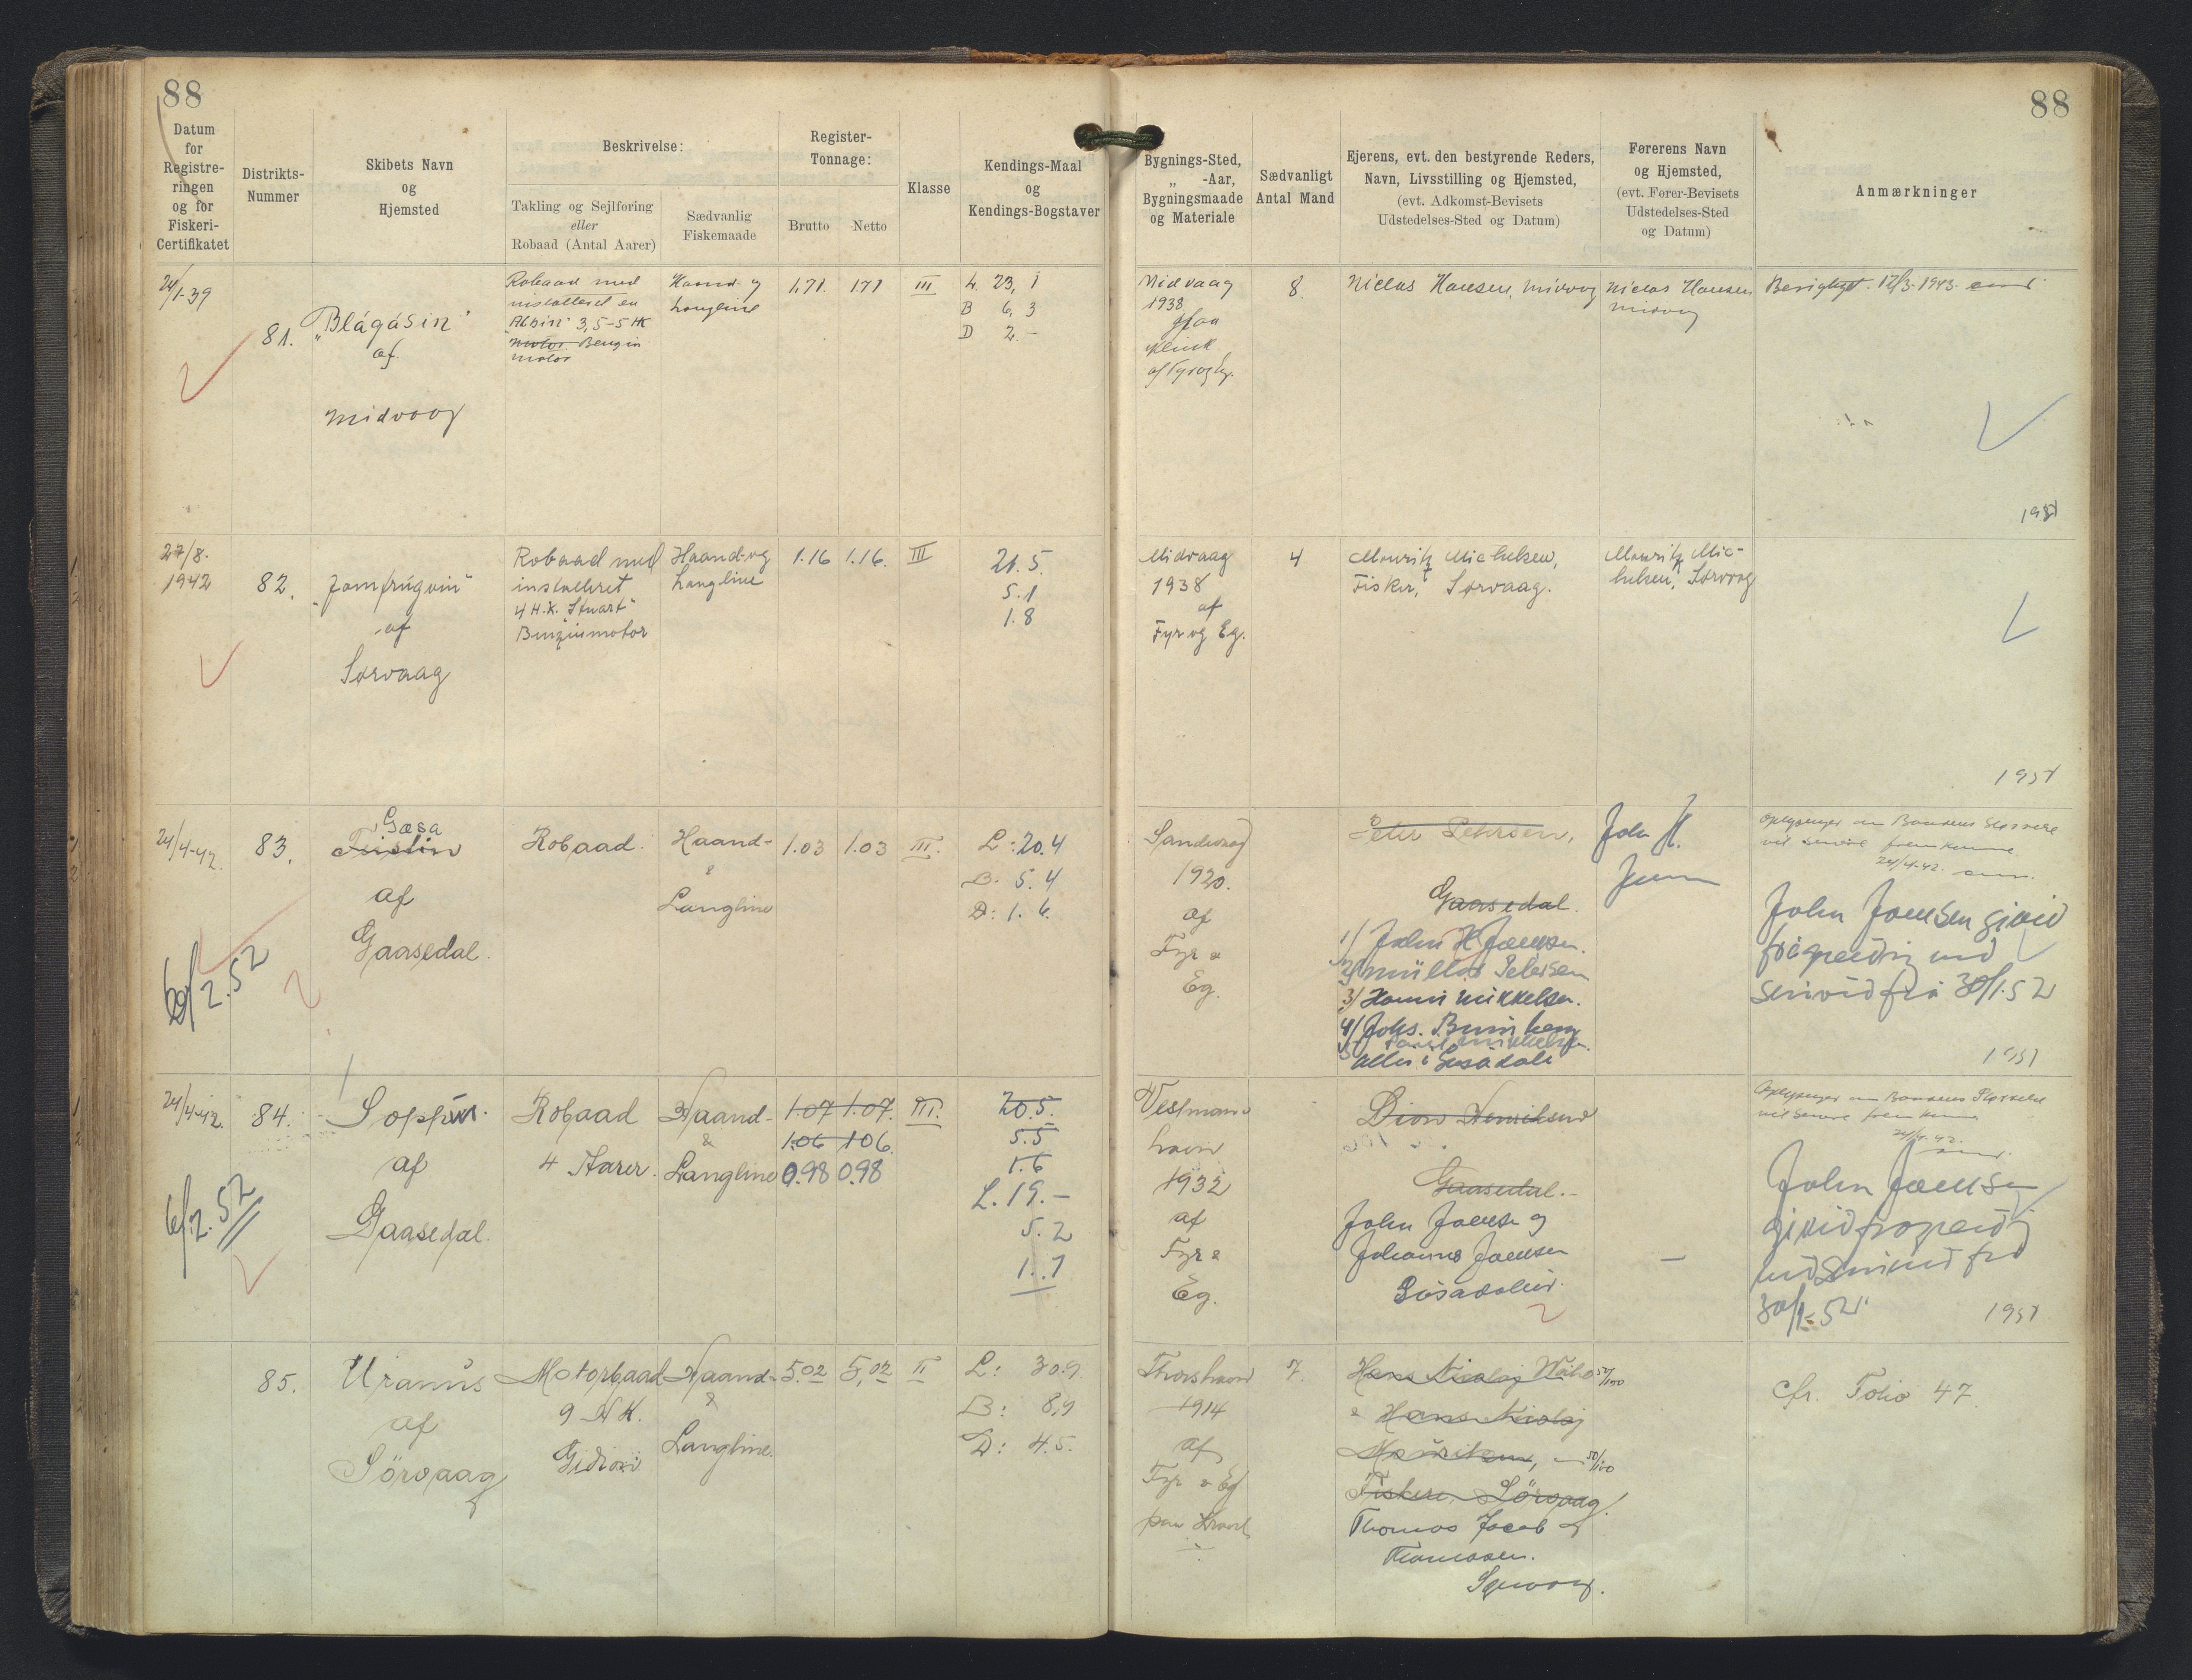 88
88
Datum
for
Registre-
ringen
og for
Fiskeri-
Certifikatet
Distrikts-
Nummer
Skibets Navn
og
Hjemsted
Beskrivelse:
Takling og Sejlføring
eller
Robaad (Antal Aarer)
Sædvanlig
Fiskemaade
Register-
Tonnage:
Brutto
Netto
Klasse
Kendings-Maal
og
Kendings-Bogstaver
Bygnings-Sted,
„ -Aar,
Bygningsmaade
og Materiale
Sædvanligt
Antal Mand
Ejerens, evt. den bestyrende Reders,
Navn, Livsstilling og Hjemsted,
(evt. Adkomst-Bevisets
Udstedelses-Sted og Datum)
Førerens Navn
og Hjemsted,
(evt. Fører-Bevisets
Udstedelses-Sted
og Datum)
Anmærkninger
24/1-39
81.
„Blágásin"
af
Midvaag
Robaad med
installeret en
"Albin" 3,5-5 HK
Motor Benzin
motor
Haand- og
Langline
1,71.
1,71
III
L. 23, 1
B 6, 3
D 2. -
Midvaag
1938
paa
Klink
af Fyr og Eg.
8.
Niclas Hansen, Midvaag
Niclas Hansen
Midvaag
Berigtiget. 12/3-1943.
1951
27/8.
1942
82.
"Jomfrúgvin"
af
Sørvaag
Robaad med
installeret
4 H.K. "Stuart"
Benzinmotor
Haand- og
Langline
1.16
1.16.
III
21.5.
5.1
1.8
Midvaag
1938
af
Fyr og Eg.
4
Mouritz Michelsen,
Fisker, Sørvaag.
Mouritz Mic-
helsen, Sørvaag
1951
24/4-42.
83.
Gæsa
Tristin
af
Gaasedal.
6/2.52
Robaad.
Haand-
&
Langline
1.03
1.03
III.
L: 20.4
B. 5.4
D: 1.6.
Sandevaag
1920.
af
Fyr &
Eg.
Peter Petersen,
Gaasedal.
1/ John H Joensen.
2/ Müller Petersen
3/ Hanni Mikkelsen.
4/ Johs. Bun berg
Mikkelsen.
allir í Gásadali
John H.
Joen
Oplysninger om Baadens Størrelse
vil senere fremkomme
24/4-42.
John Joensen givið
fráspeiðing við
skrivið frá 30/1.52
1951
24/4-42.
84.
Soppin.
af
Gaasedal.
6/2.52
Robaad
4 Aarer.
Haand-
&
Langline
1.07
1.07.
1.06
106
0.98
0.98
III.
20.5.
5.5
1.6
L. 19.-
5.2
1.7
Vestmann
havn
1932
af
Fyr &
Eg.
Henriksen
Gaasedal.-
John Joensen og
Johannes Joensen
Gásadalur.
-
Oplysninger om Baadens Størrelse
vil senere fremkomme
24/4-42.
John Joensen
30/1-52
1951
85.
Uranus
af
Sörvaag
Motorbaad
9 HK.
Haand-
&
Langline.
5.02
5,02
II
L: 30.9
B: 8,9
D: 4.5.
Thorshavn
1914
af
Fyr & Eg
paa Kravel
7.
Hans Nicolaj 50/100
& Hans Nicolaj
50/100
Fiskere, Sörvaag.
Thomas Jacob
Thomasen.
Sørvaag.
cfr. Folio 47.